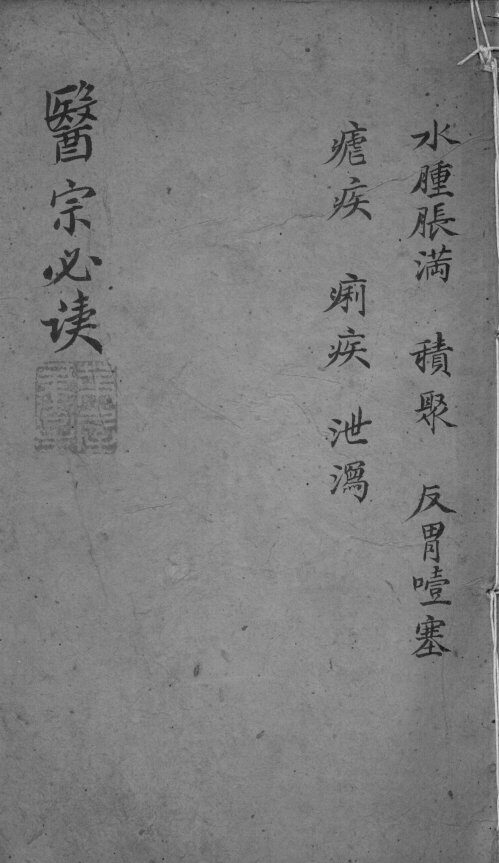 水腫脹満 積聚 反胃噎塞
瘧疾 痢疾 泄瀉
醫宗必读